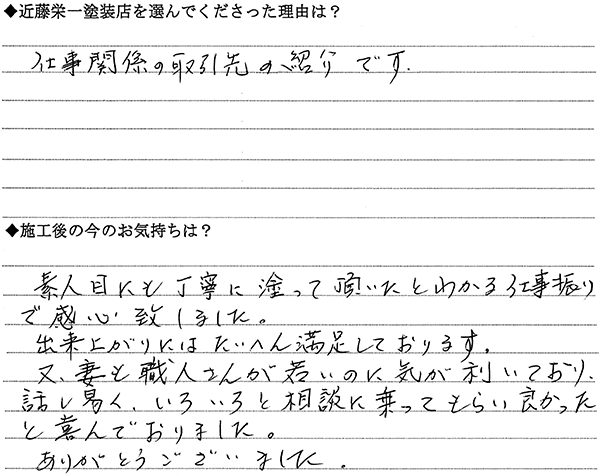 ◆近藤栄一塗装店を選んでくださった理由は？
仕事関係の取引先の紹介です.
◆施工後の今のお気持ちは？
素人目にも丁寧に塗って頂いたとわかる仕事振り
で感心致しました。
出来上がりにはたいへん満足しております。
又、妻も職人さんが若いのに気が利いており、
話し易く、いろいろと相談に乗ってもらい良かった
と喜んでおりました。
ありがとうございました.